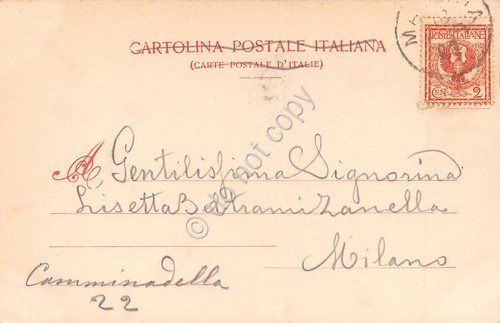 CARTOLINA POSTALE ITALIANA
(CARTE POSTALE D'ITALIE)
POSTE ITALIANE
CEN. 2
A Gentilissima Signorina
Lisetta Beltrami Zanella
Milano
Camminadella
22
© do not copy